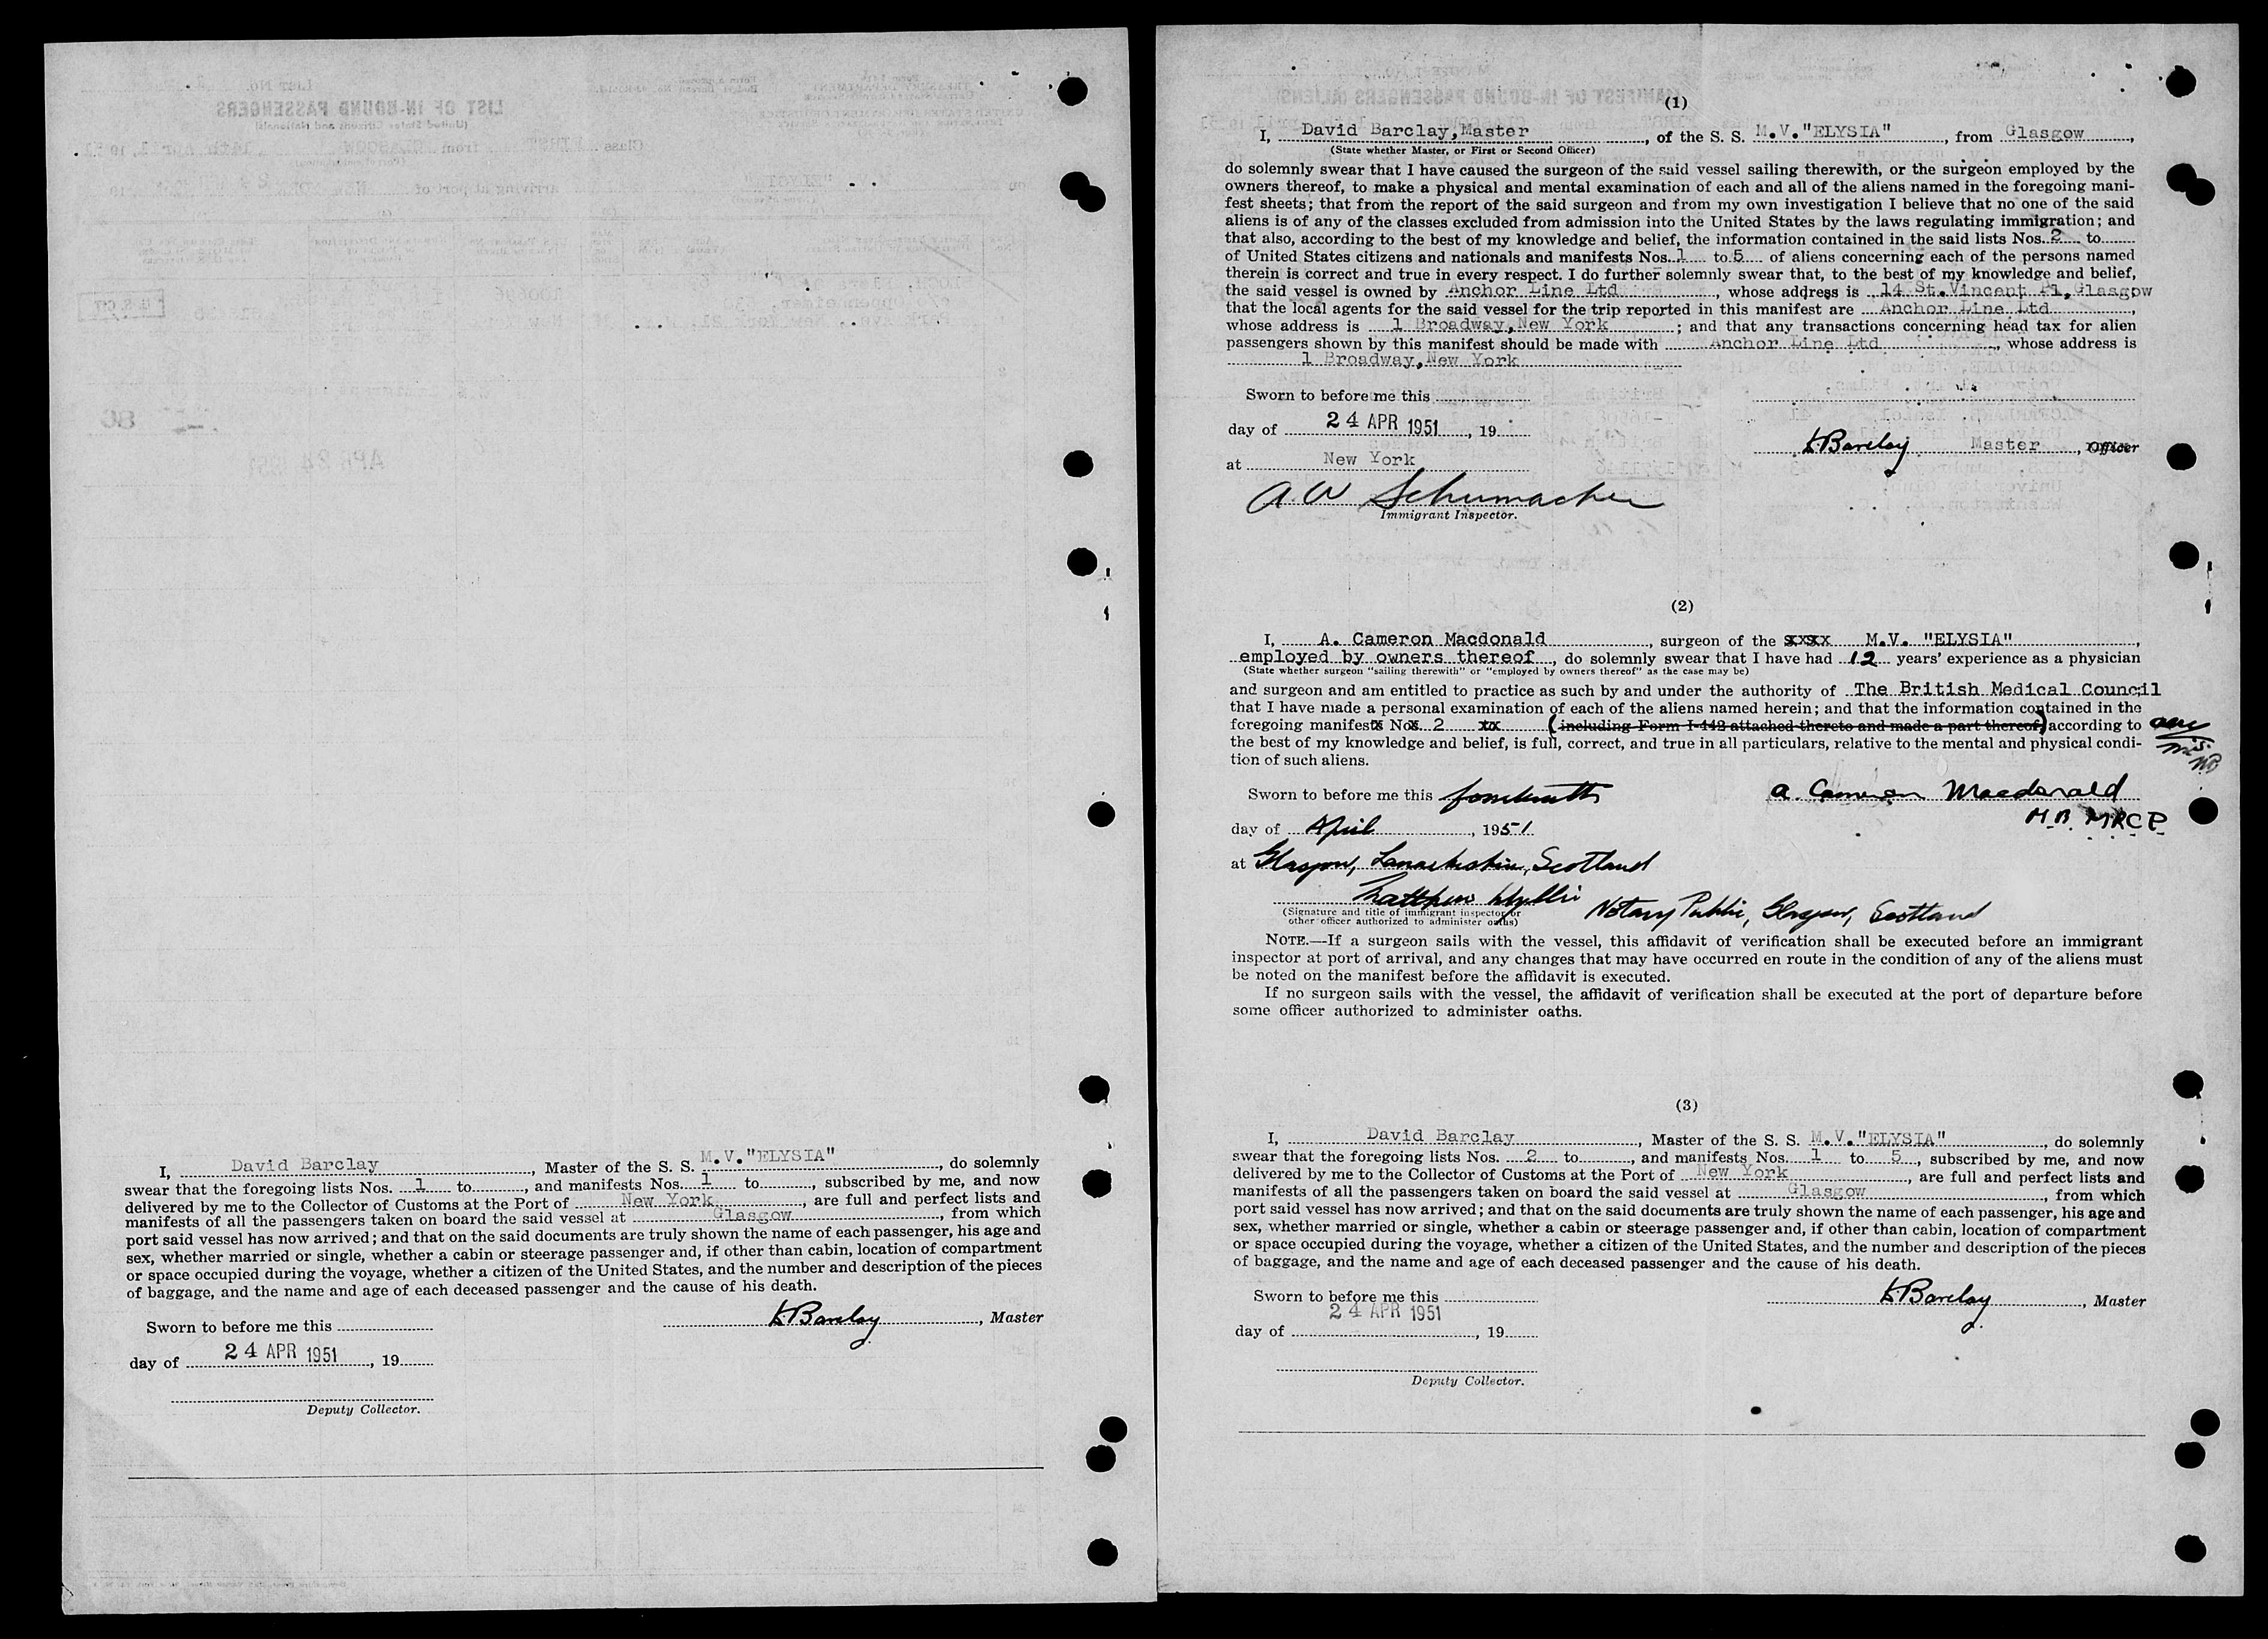 I, David Barclay, Master of the S. S. M.V."ELYSIA", do solemnly
swear that the foregoing lists Nos. 1 to, and manifests Nos. 1 to, subscribed by me, and now
delivered by me to the Collector of Customs at the Port of New York, are full and perfect lists and
manifests of all the passengers taken on board the said vessel at Glasgow, from which
port said vessel has now arrived; and that on the said documents are truly shown the name of each passenger, his age and
sex, whether married or single, whether a cabin or steerage passenger and, if other than cabin, location of compartment
or space occupied during the voyage, whether a citizen of the United States, and the number and description of the pieces
of baggage, and the name and age of each deceased passenger and the cause of his death.
D. Barclay, Master
Sworn to before me this
day of 24 APR 1951, 19
Deputy Collector.
(1)
I, David Barclay, Master, of the S. S. M.V."ELYSIA", from Glasgow,
(State whether Master, or First or Second Officer)
do solemnly swear that I have caused the surgeon of the said vessel sailing therewith, or the surgeon employed by the
owners thereof, to make a physical and mental examination of each and all of the aliens named in the foregoing mani-
fest sheets; that from the report of the said surgeon and from my own investigation I believe that no one of the said
aliens is of any of the classes excluded from admission into the United States by the laws regulating immigration; and
that also, according to the best of my knowledge and belief, the information contained in the said lists Nos. 2 to
of United States citizens and nationals and manifests Nos. 1 to 5 of aliens concerning each of the persons named
therein is correct and true in every respect. I do further solemnly swear that, to the best of my knowledge and belief,
the said vessel is owned by Anchor Line Ltd, whose address is 14 St.Vincent Pl, Glasgow
that the local agents for the said vessel for the trip reported in this manifest are Anchor Line Ltd,
whose address is 1 Broadway, New York; and that any transactions concerning head tax for alien
passengers shown by this manifest should be made with Anchor Line Ltd, whose address is
1 Broadway, New York
Sworn to before me this
day of 24 APR 1951, 19
D. Barclay Master, Officer
at New York
A. W Schumacher
Immigrant Inspector.
(2)
I, A. Cameron Macdonald, surgeon of the xxxx M.V. "ELYSIA",
employed by owners thereof, do solemnly swear that I have had 12 years' experience as a physician
(State whether surgeon "sailing therewith" or "employed by owners thereof" as the case may be)
and surgeon and am entitled to practice as such by and under the authority of The British Medical Council
that I have made a personal examination of each of the aliens named herein; and that the information contained in the
foregoing manifests Nos. 2 xx (including Form I-442 attached thereto and made a part thereof) according to
the best of my knowledge and belief, is full, correct, and true in all particulars, relative to the mental and physical condi-
tion of such aliens.
Sworn to before me this fourteenth
A. Cameron Macdonald
M.B. MRCP
day of April, 1951
at Glasgow, Lanarkshire, Scotland
Matthew Wyllie Notary Public, Glasgow, Scotland
(Signature and title of immigrant inspector or
other officer authorized to administer oaths)
NOTE.—If a surgeon sails with the vessel, this affidavit of verification shall be executed before an immigrant
inspector at port of arrival, and any changes that may have occurred en route in the condition of any of the aliens must
be noted on the manifest before the affidavit is executed.
If no surgeon sails with the vessel, the affidavit of verification shall be executed at the port of departure before
some officer authorized to administer oaths.
(3)
I, David Barclay, Master of the S. S. M.V."ELYSIA", do solemnly
swear that the foregoing lists Nos. 2 to, and manifests Nos. 1 to 5, subscribed by me, and now
delivered by me to the Collector of Customs at the Port of New York, are full and perfect lists and
manifests of all the passengers taken on board the said vessel at Glasgow, from which
port said vessel has now arrived; and that on the said documents are truly shown the name of each passenger, his age and
sex, whether married or single, whether a cabin or steerage passenger and, if other than cabin, location of compartment
or space occupied during the voyage, whether a citizen of the United States, and the number and description of the pieces
of baggage, and the name and age of each deceased passenger and the cause of his death.
D. Barclay, Master
Sworn to before me this
24 APR 1951
day of, 19
Deputy Collector.